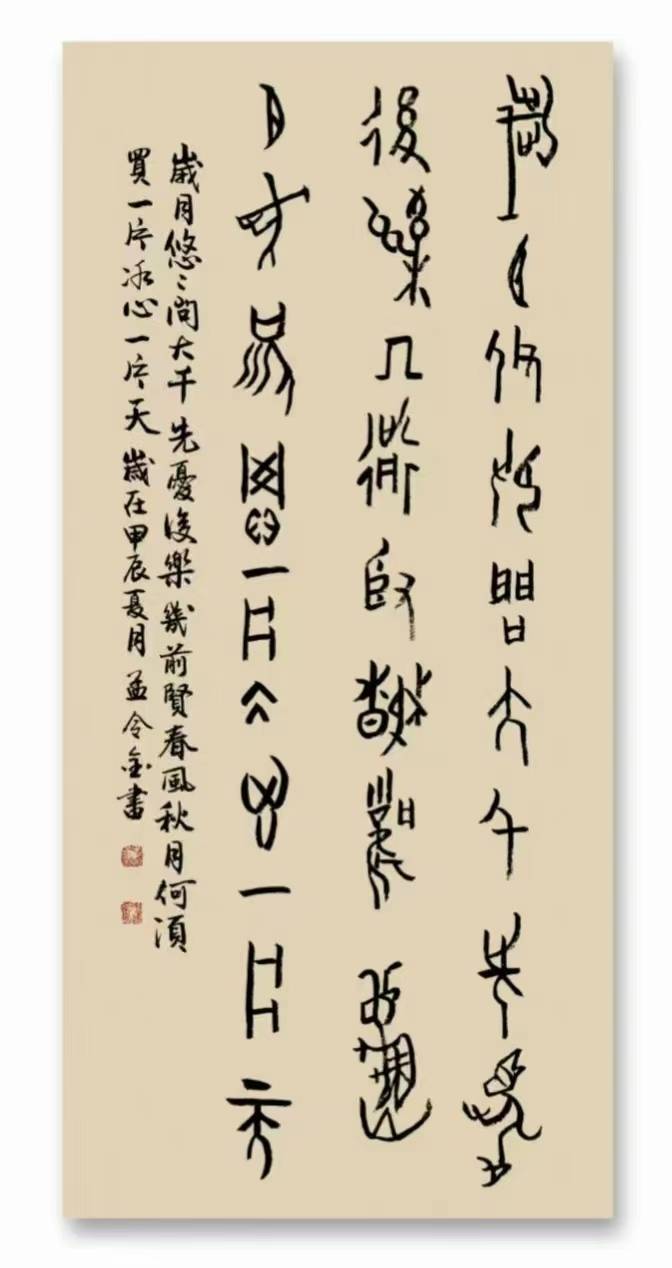 歲月悠悠問大千先憂
後樂幾前賢春風秋
月何須買一片冰心一片天
歲月悠〻問大千先憂後樂幾前賢春風秋月何須
買一片冰心一片天 歲在甲辰夏月 孟令金書